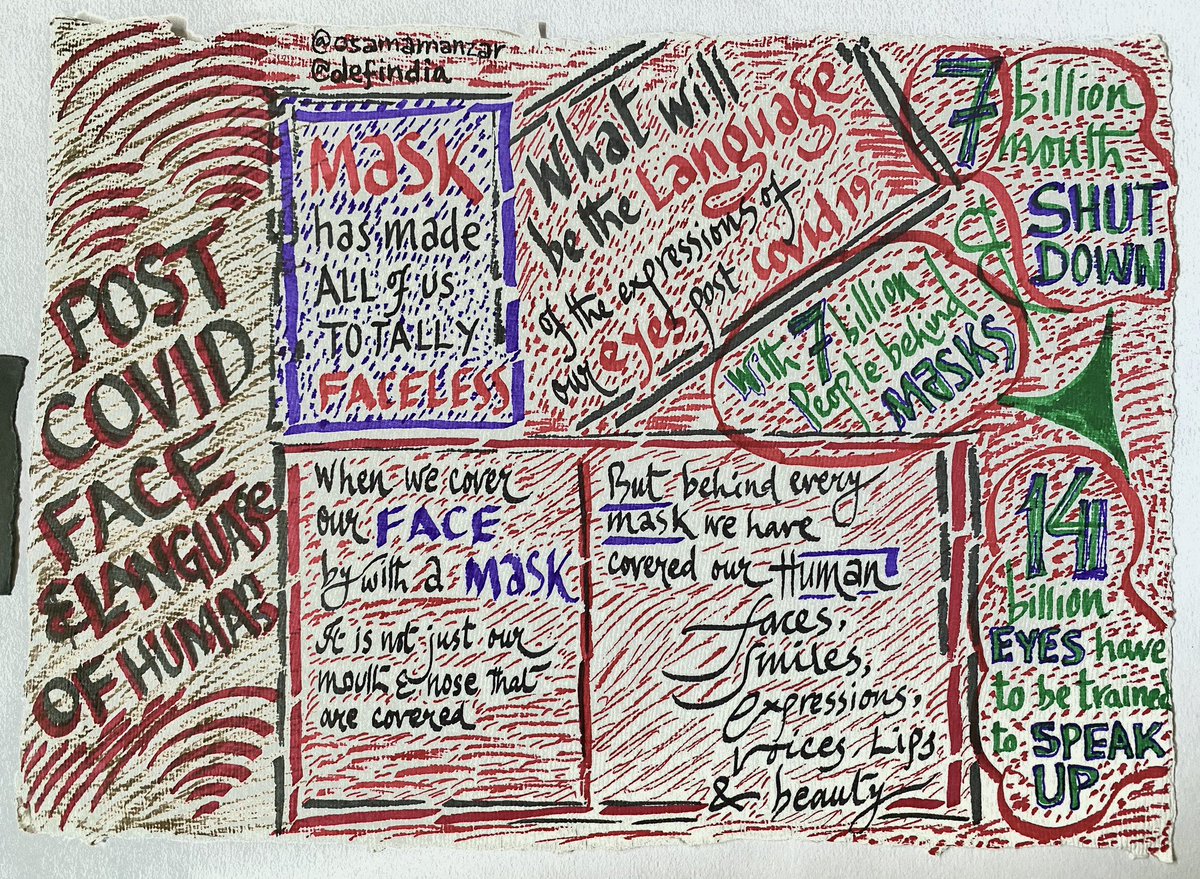 @osamamanzar
@defindia
POST
COVID
FACE
& LANGUAGE
OF HUMANS
MASK
has made
ALL of us
TOTALLY
FACELESS
What will
be the Language
of the expressions of
our eyes post covid 19
7 billion
mouth
SHUT
DOWN
&
with 7 billion
People behind
MASKS
14
billion
EYES have
to be trained
to SPEAK
UP
When we cover
our FACE
by with a MASK
It is not just our
mouth & nose that
are covered
But behind every
mask we have
covered our Human
faces,
smiles,
expressions,
voices Lips
& beauty